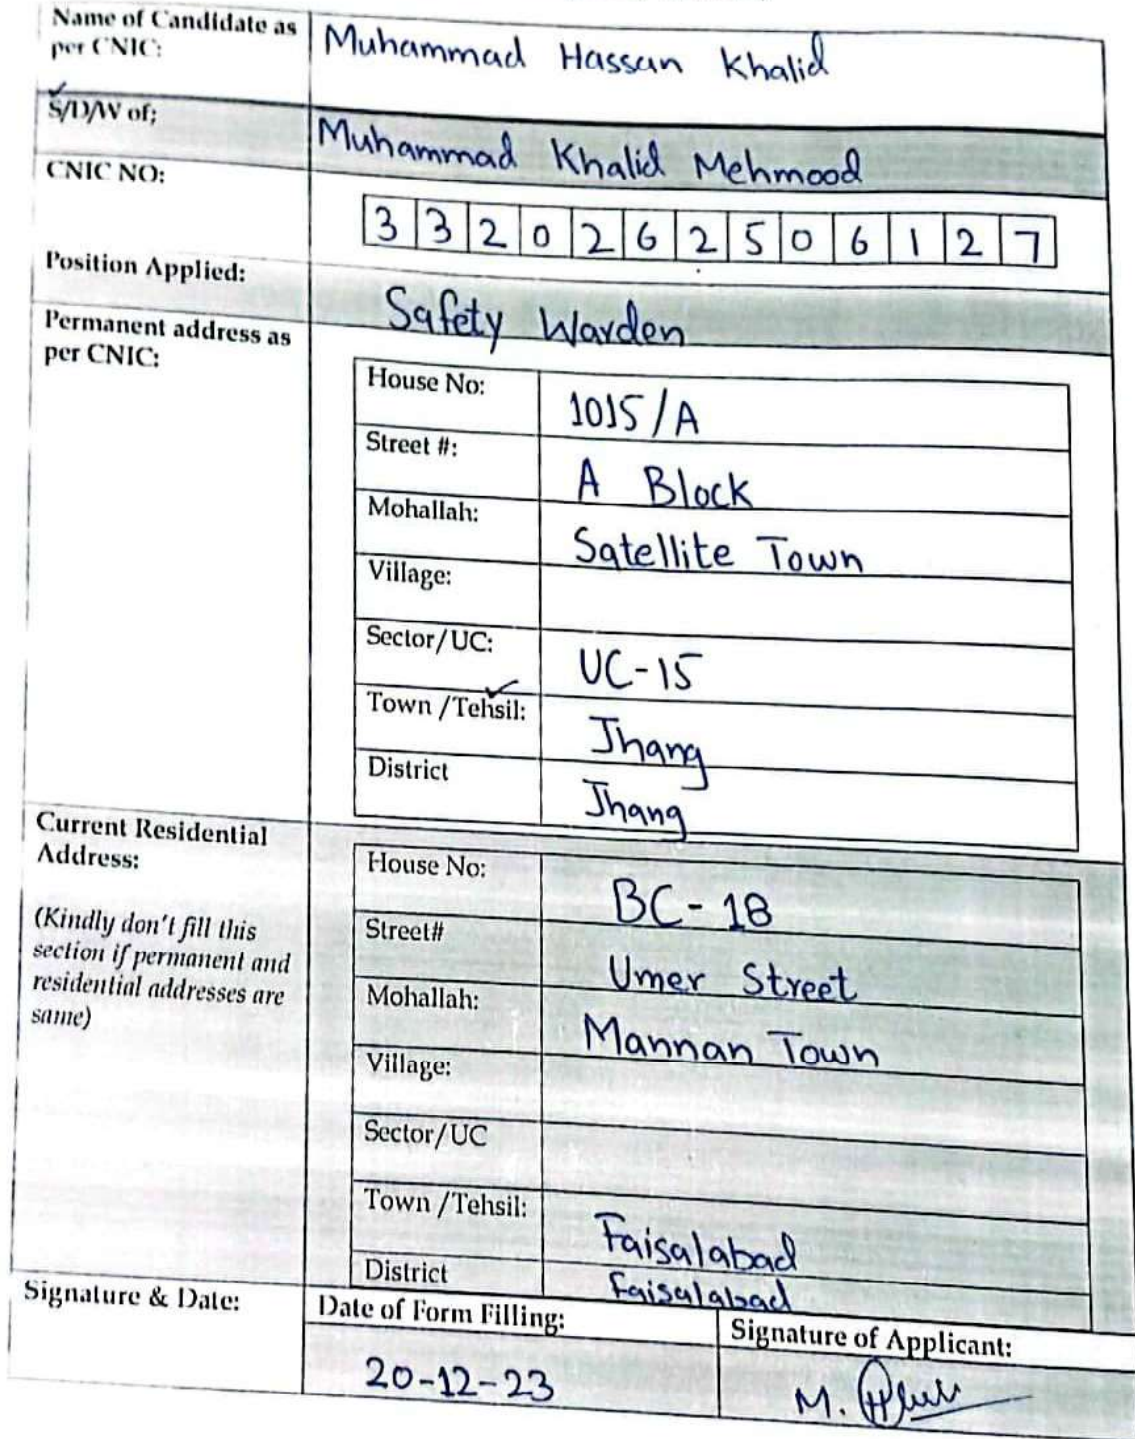 Name of Candidate as per CNIC: Muhammad Hassan Khalid
S/D/W of; Muhammad Khalid Mehmood
CNIC NO: 3 3 2 0 2 6 2 5 0 6 1 2 7
Position Applied: Safety Warden
Permanent address as per CNIC:
House No: 1015/A
Street #: A Block
Mohallah: Satellite Town
Village:
Sector/UC: UC-15
Town /Tehsil: Jhang
District Jhang
Current Residential Address:
(Kindly don't fill this
section if permanent and
residential addresses are
same)
House No: BC-18
Street# Umer Street
Mohallah: Mannan Town
Village:
Sector/UC
Town /Tehsil: Faisalabad
District Faisalabad
Signature & Date:
Date of Form Filling: 20-12-23
Signature of Applicant: M.